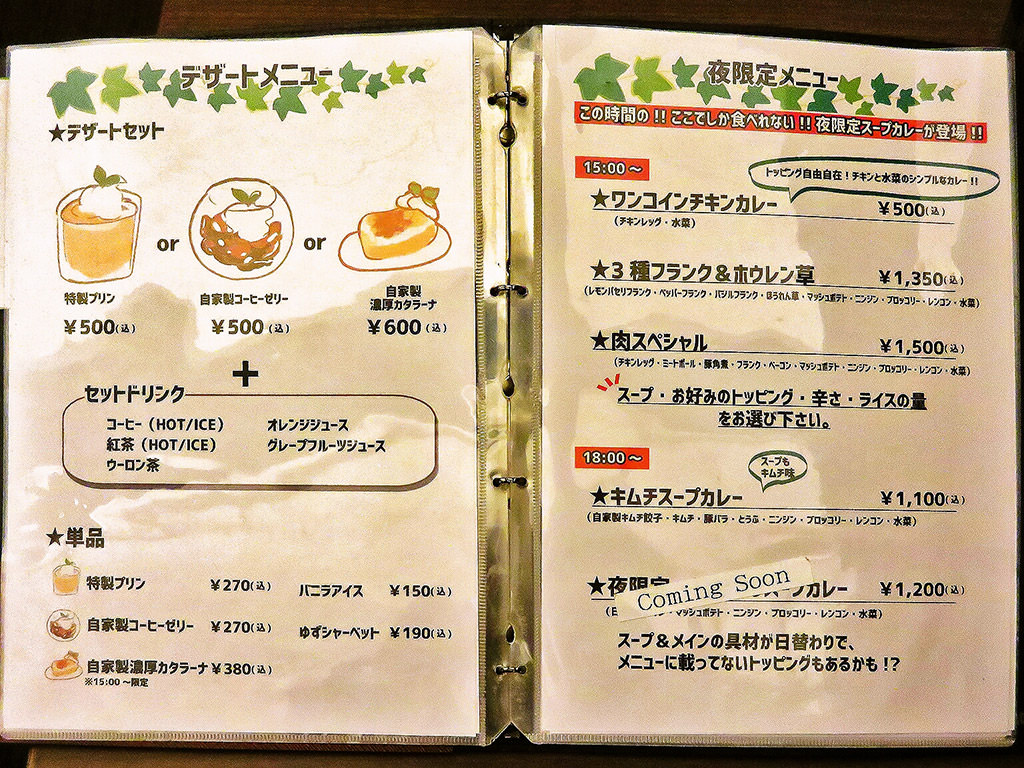 デザートメニュー
★デザートセット
or
or
特製プリン
¥500(込)
自家製コーヒーゼリー
¥500(込)
自家製
濃厚カタラーナ
¥600(込)
+
セットドリンク
コーヒー(HOT/ICE) オレンジジュース
紅茶(HOT/ICE) グレープフルーツジュース
ウーロン茶
★単品
特製プリン ¥270(込) バニラアイス ¥150(込)
自家製コーヒーゼリー ¥270(込) ゆずシャーベット ¥190(込)
自家製濃厚カタラーナ ¥380(込)
※15:00~限定
夜限定メニュー
この時間の!!ここでしか食べれない!!夜限定スープカレーが登場!!
15:00~
トッピング自由自在!チキンと水菜のシンプルなカレー!!
★ワンコインチキンカレー ¥500(込)
(チキンレッグ・水菜)
★3種フランク&ホウレン草 ¥1,350(込)
(レモンパセリフランク・ペッパーフランク・バジルフランク・ほうれん草・マッシュポテト・ニンジン・ブロッコリー・レンコン・水菜)
★肉スペシャル ¥1,500(込)
(チキンレッグ・ミートボール・豚角煮・フランク・ベーコン・マッシュポテト・ニンジン・ブロッコリー・レンコン・水菜)
スープ・お好みのトッピング・辛さ・ライスの量
をお選び下さい。
18:00~
スープも
キムチ味
★キムチスープカレー ¥1,100(込)
(自家製キムチ餃子・キムチ・豚バラ・とうふ・ニンジン・ブロッコリー・レンコン・水菜)
★夜限定 スープカレー ¥1,200(込)
Coming Soon
マッシュポテト・ニンジン・ブロッコリー・レンコン・水菜)
スープ&メインの具材が日替わりで、
メニューに載ってないトッピングもあるかも!?